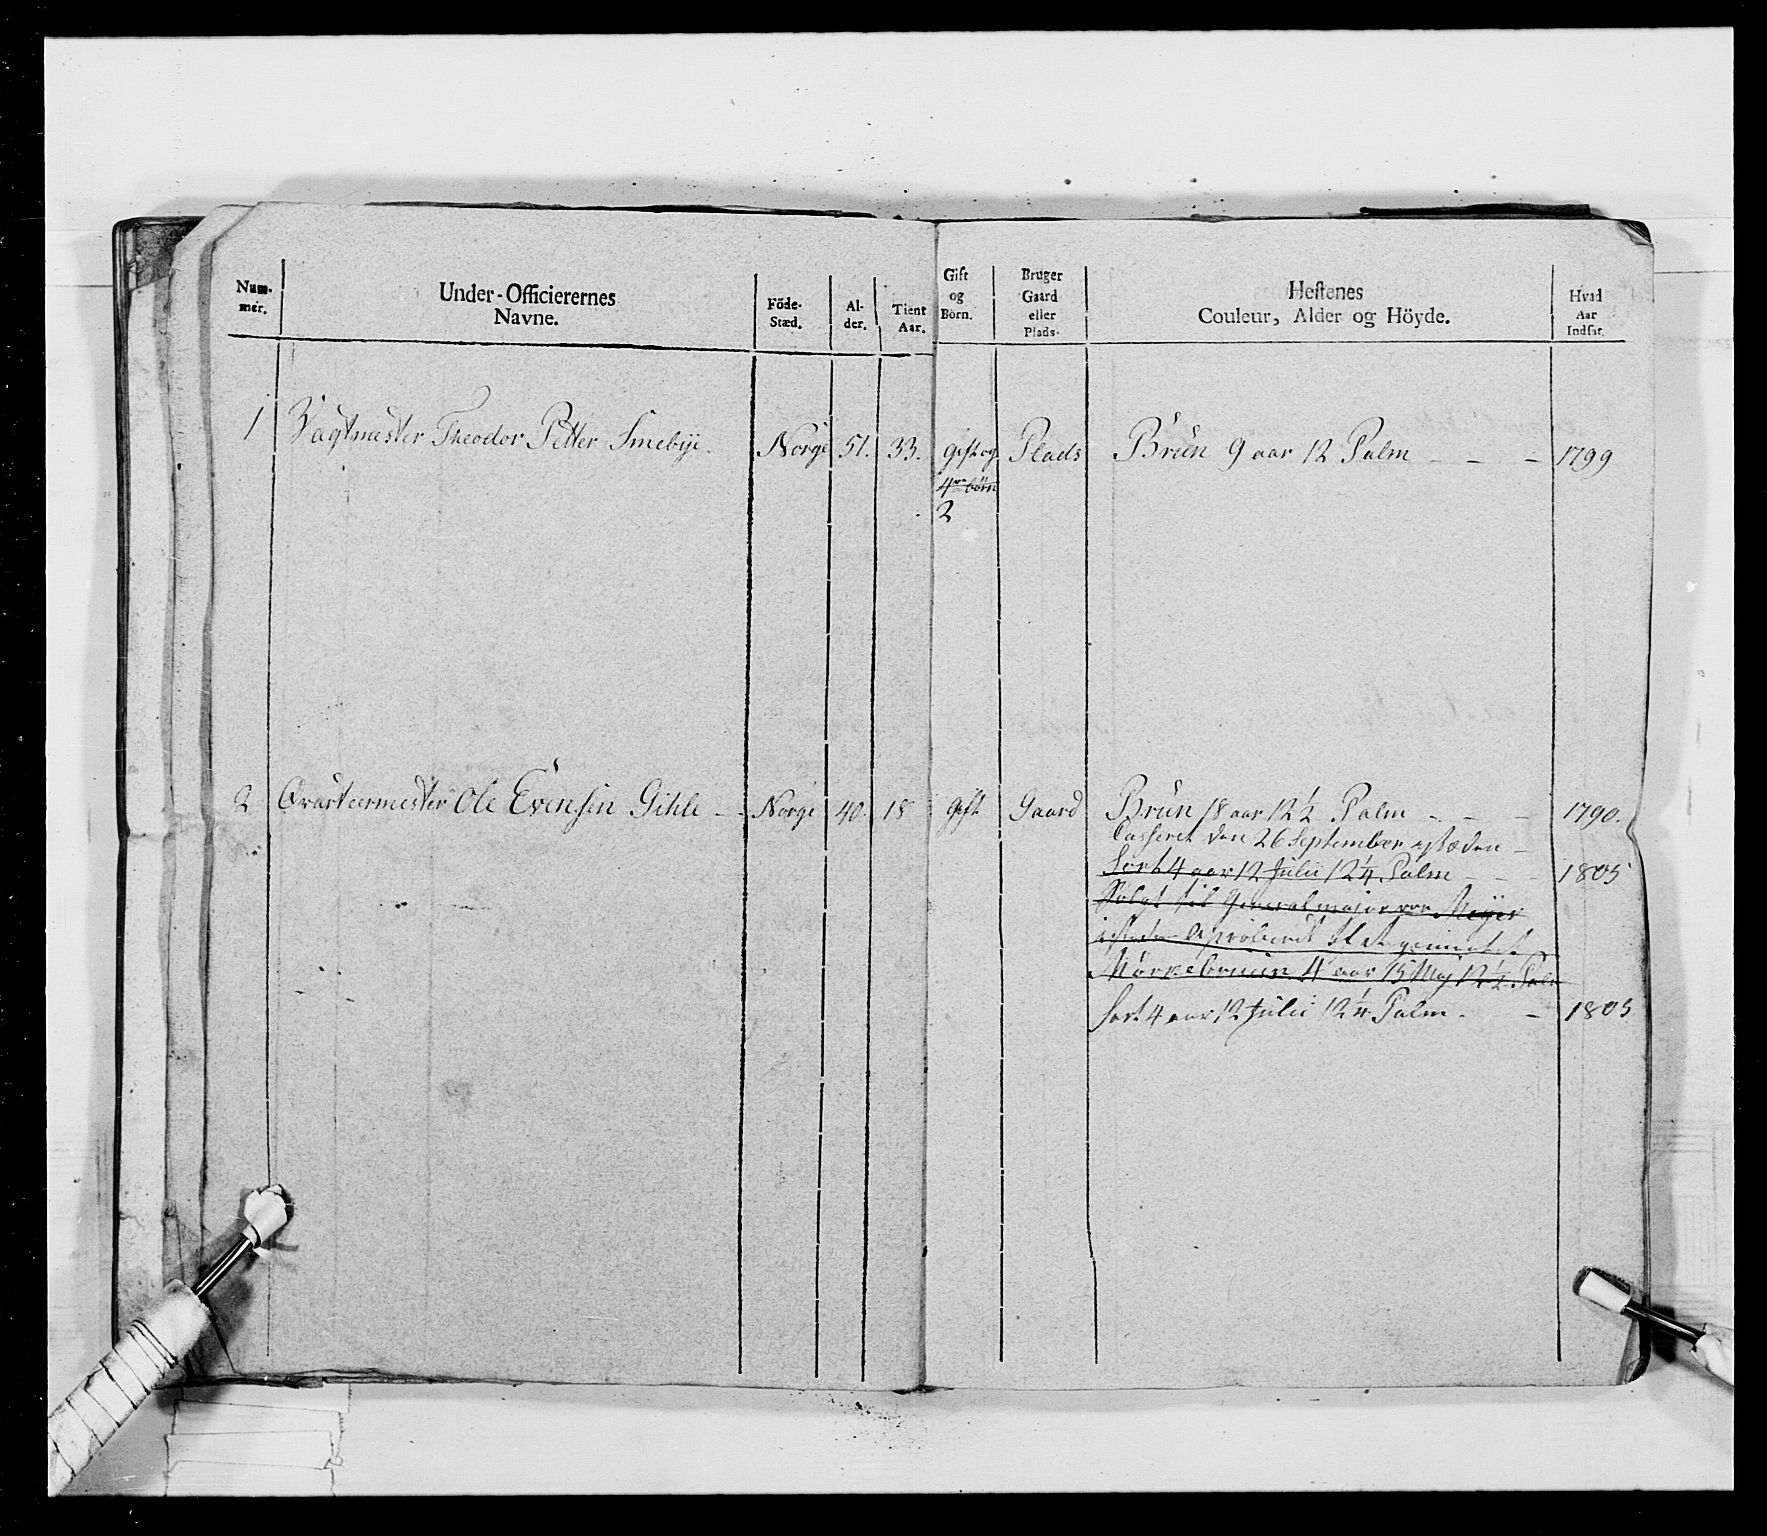 Num-
mer.
Under-Officierernes
Navne.
Föde-
Stæd.
Al-
der.
Tient
Aar.
Gift
og
Börn.
Bruger
Gaard
eller
Plads.
Hestenes
Couleur, Alder og Höyde.
Hvad
Aar
Indsat.
1 Vagtmester Theodor Petter Smebye Norge 51. 33. Gift og Plads Brun 9 aar 12 Palm - - - 1799
4re børn
2
2 Qvarteermester Ole Evensen Gihle - - Norge 40. 18 Gift Gaard Brun 18 aar 12 1/2 Palm - - - 1790.
Casseret den 26 September istæden -
Sort 4 aar 12 Julii 12 1/4 Palm - - - 1805
Solgt til Generalmajor von Meyer
Mörkebruun 4 aar 15 Maj 12 1/2 Palm
Sort 4 aar 12 Julii 12 1/4 Palm. - 1805